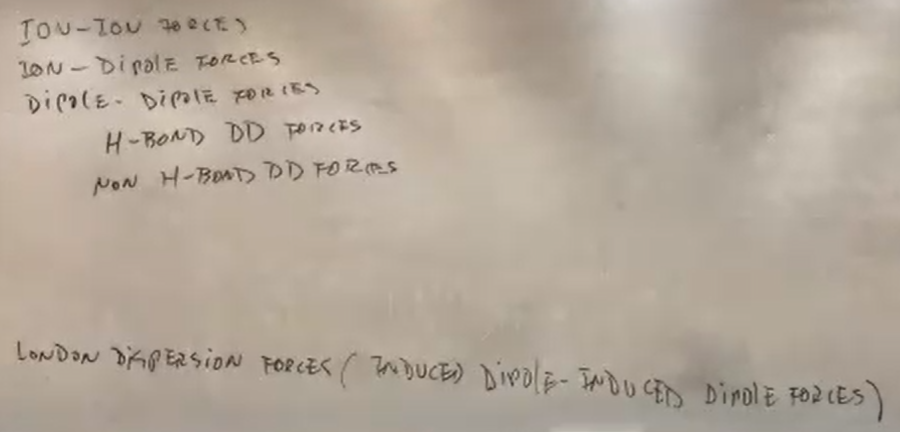 ION-ION FORCES
ION-DIPOLE FORCES
DIPOLE-DIPOLE FORCES
H-BOND DD FORCES
NON H-BOND DD FORCES
LONDON DISPERSION FORCES (INDUCED DIPOLE-INDUCED DIPOLE FORCES)